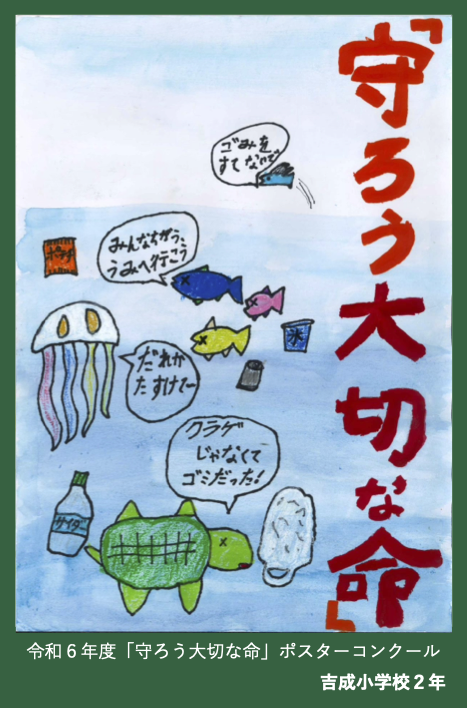 「守ろう大切な命」
ゴみを
すてないで
みんなちがう、
うみへ行こう
ポテチ
氷
だれが
たすけてー
クラゲ
じゃなくて
ゴミだった!
サイダー
令和６年度「守ろう大切な命」ポスターコンクール
吉成小学校２年